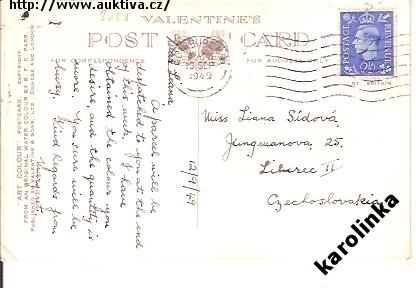 http://www.auktiva.cz/
2028
VALENTINE'S
POST CARD
FOR CORRESPONDENCE
FOR ADDRESS ONLY
"ART COLOUR" POSTCARD.
FROM AN ORIGINAL WATER COLOUR BY B. F. C. PARR.
PUBLISHED BY VALENTINE & SONS, LTD. DUNDEE AND LONDON
POSTAGE
REVENUE
2½D
SEP
1949
Miss Liana
A parcel will be
despatched to you at the end
of this week. I have
obtained the colours you
desire, and the quantity is
more. You sure will be
busy. Kind Regards from
Margaret
12/9/49
Miss Liana Šídová,
Jungmanova, 25,
Liberec II
Czechoslovakia
karolinka